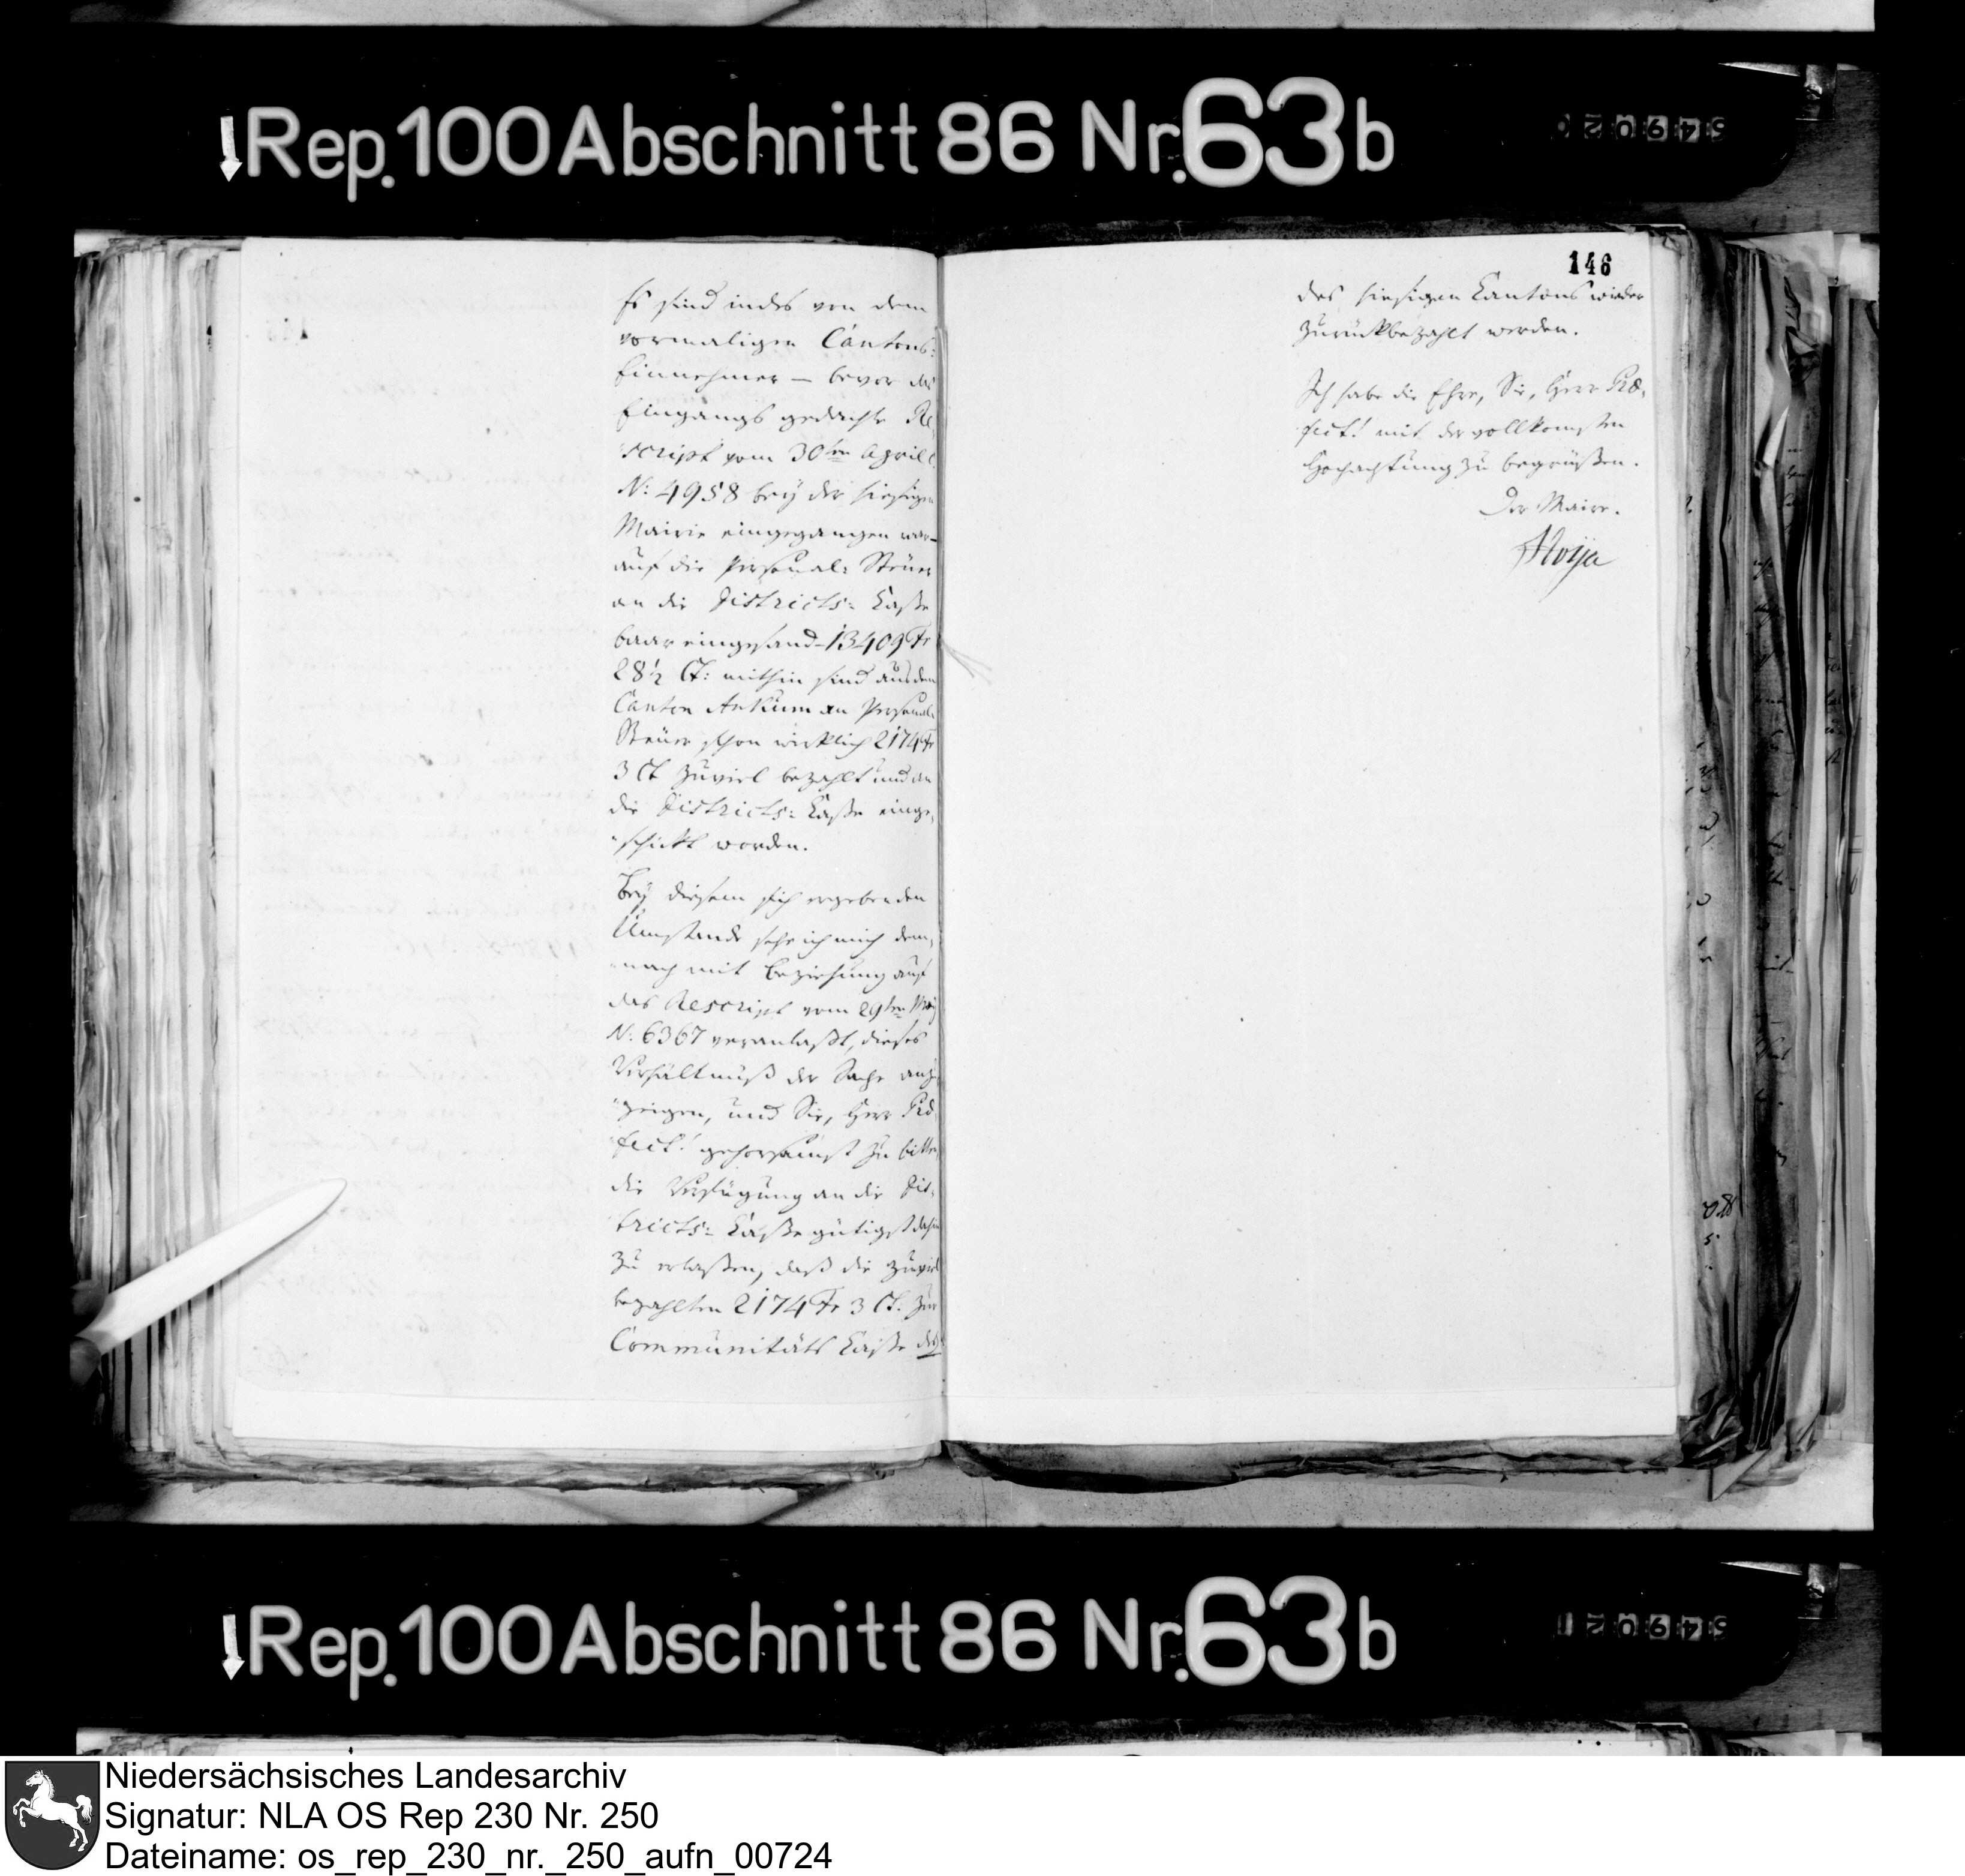 Rep. 100 Abschnitt 86 Nr. 63 b
Es sind indes von dem
vormaligen Cantons=
Einnehmer — bevor das
Eingangs gedachte Re
script vom 30ten April c.
N: 4958 bey der hiesigen
Mairie eingegangen war —
auf die Personal= Steuer
an die Districts= Casse
baar eingesand — 13409 Fr
28½ Ct: mithin sind aus dem
Canton Ankum an Personal
Steuer schon wirklich 2174 Fr
3 Ct zuviel bezahlt und an
die Districts= Casse einge,
schickt worden.
Bey diesem sich ergebenden
Umstande sehe ich mich dem,
nach mit Beziehung auf
das Rescript vom 29ten May
N: 6367 veranlaßt, dieses
Verhältnuß der Sache anzu
zeigen, und Sie, Herr Prä
fect! gehorsamst zu bitten,
die Verfügung an die Dis=
tricts= Casse gütigst dahin
zu erlaßen, daß die zuviel
bezahlten 2174 Fr 3 Ct. zur
Communitäts Casse des
146
des hiesigen Cantons wieder
zurückbezahlt werden.
Ich habe die Ehre, Sie, Herr Prä,
fect! mit der vollkomsten
Hochachtung zu begrüßen.
Der Maire.
Rep. 100 Abschnitt 86 Nr. 63 b
Niedersächsisches Landesarchiv
Signatur: NLA OS Rep 230 Nr. 250
Dateiname: os_rep_230_nr._250_aufn_00724